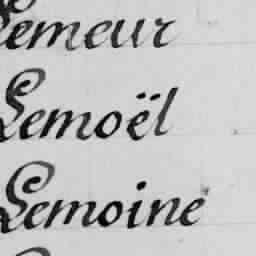 Lemeur
Lemoël
Lemoine